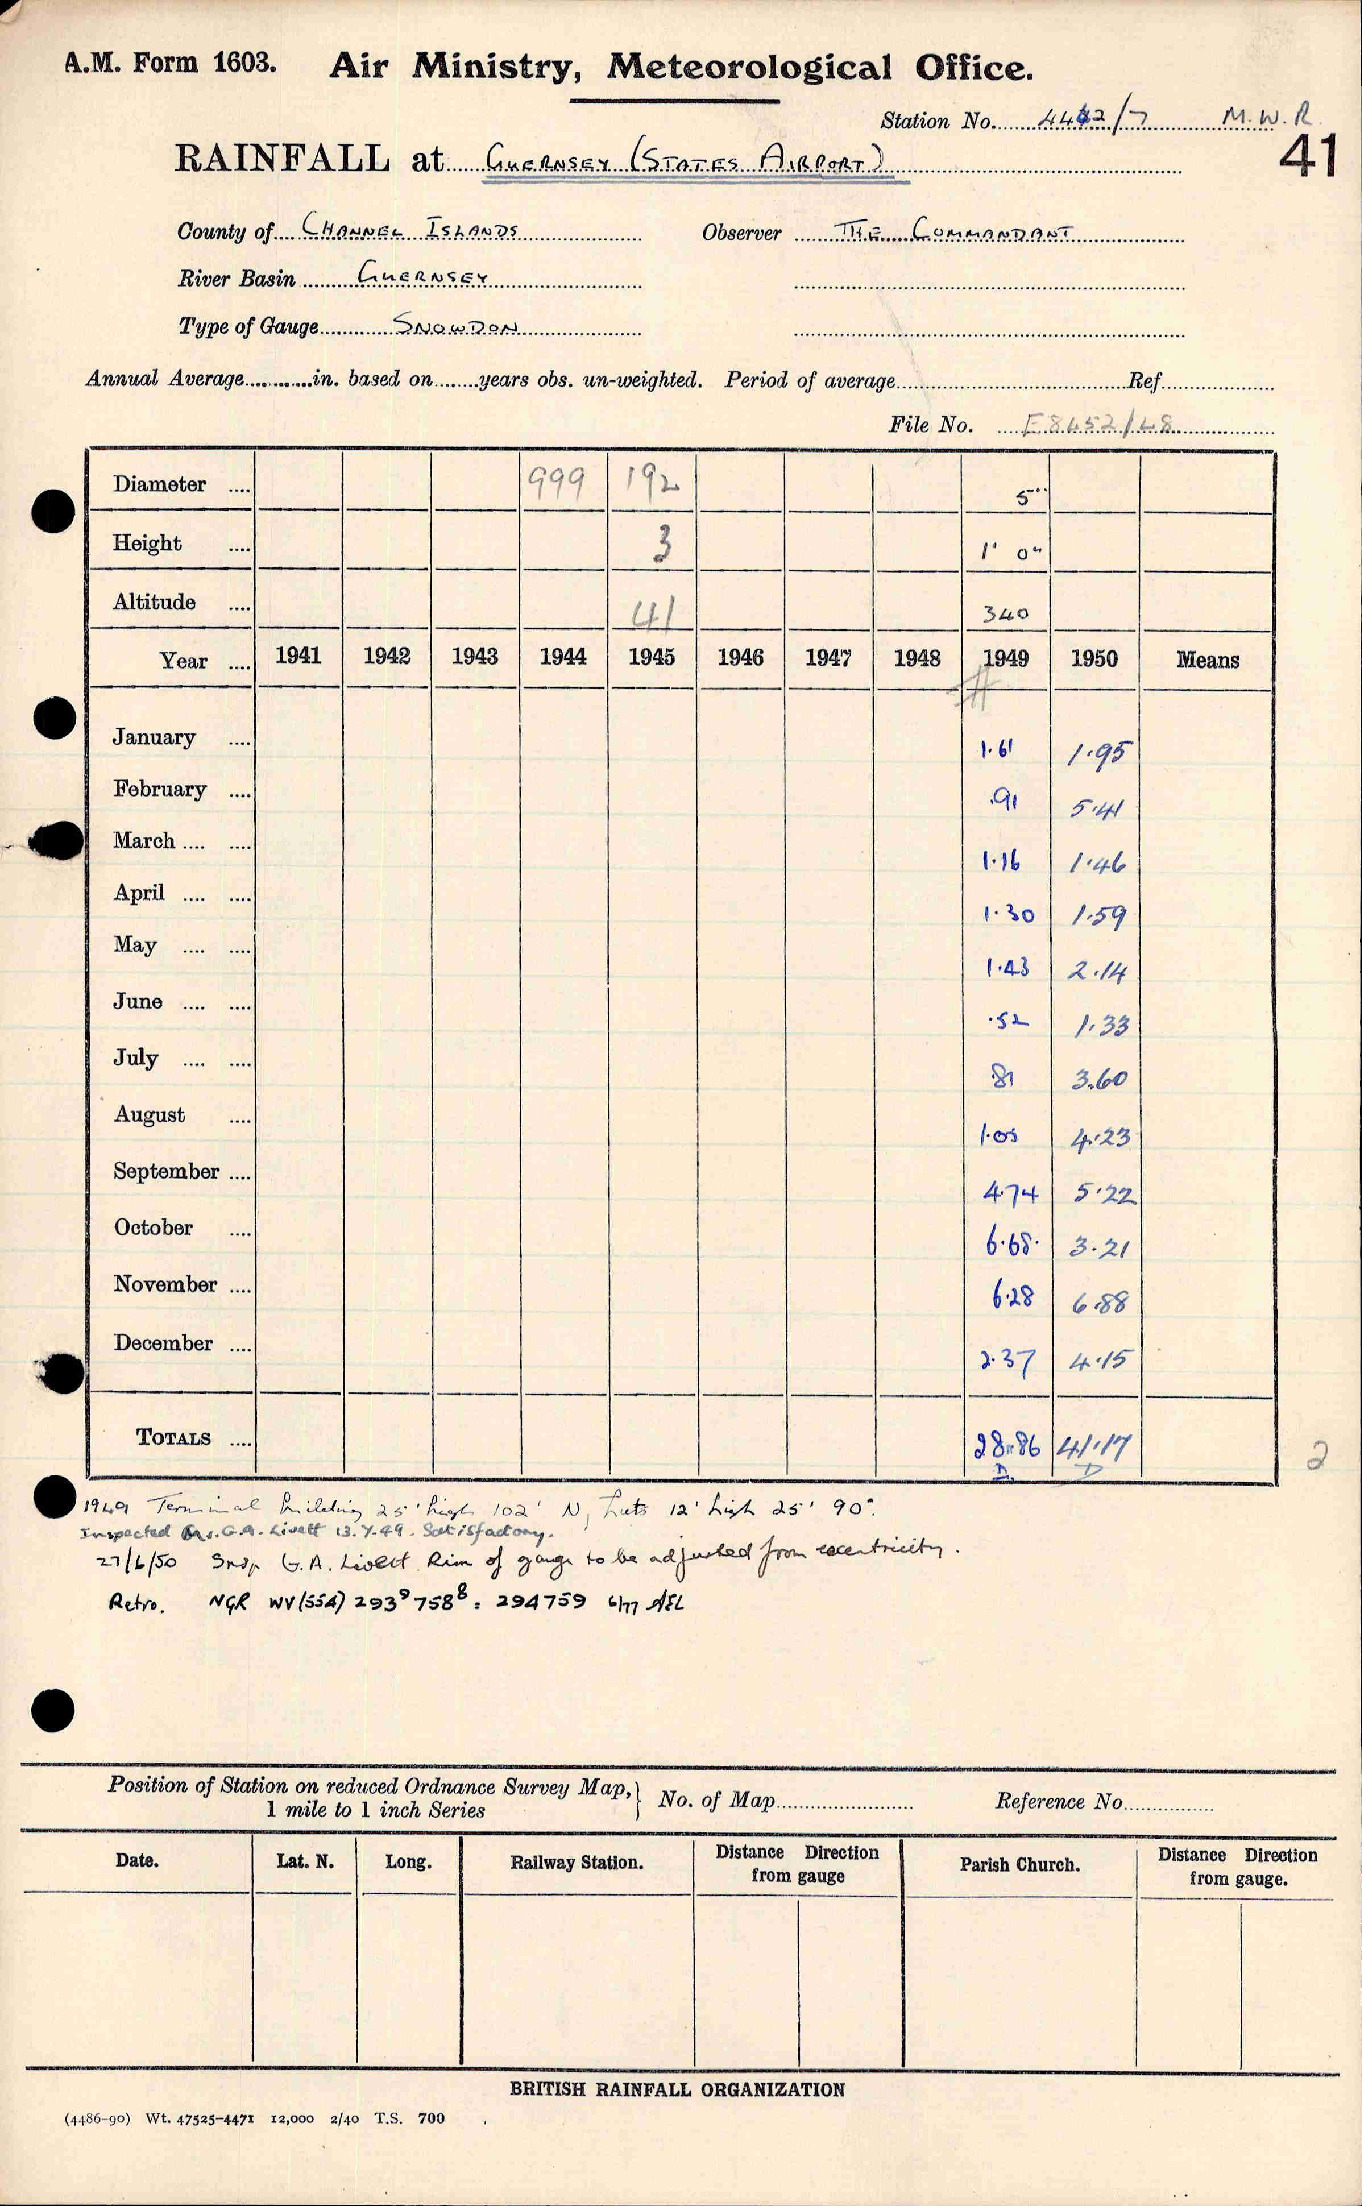 A.M. Form 1603. Air Ministry, Meteorological Office.
Station No. 4442/7 M.W.R.
41
RAINFALL at GUERNSEY (STATES AIRPORT)
County of CHANNEL ISLANDS Observer THE COMMANDANT
River Basin GUERNSEY
Type of Gauge SNOWDON
Annual Average............in. based on........years obs. un-weighted. Period of average.................... Ref....................
File No. F8452/48
Diameter .... 999 192 5"
Height .... 3 1' 0"
Altitude .... 41 340
Year .... 1941 1942 1943 1944 1945 1946 1947 1948 1949 1950 Means
January .... 1.61 1.95
February .... .91 5.41
March .... .... 1.16 1.46
April .... .... 1.30 1.59
May .... .... 1.43 2.14
June .... .... .52 1.33
July .... .... .81 3.60
August .... 1.05 4.23
September .... 4.74 5.22
October .... 6.68 3.21
November .... 6.28 6.88
December .... 2.37 4.15
TOTALS .... 28.86 41.17
D D
2
1949 Terminal building 25' high 102' N, huts 12' high 25' 90°.
Inspected Mr. G.A. Livett 13.7.49. Satisfactory.
27/6/50 Insp G.A. Livett Rim of gauge to be adjusted from eccentricity.
Retro. NGR WV(55A) 293⁹ 758⁸ : 294759 6/77 AEL
Position of Station on reduced Ordnance Survey Map, } No. of Map.................... Reference No................
1 mile to 1 inch Series
Date. Lat. N. Long. Railway Station. Distance Direction from gauge Parish Church. Distance Direction from gauge.
BRITISH RAINFALL ORGANIZATION
(4486-90) Wt. 47525-4471 12,000 2/40 T.S. 700